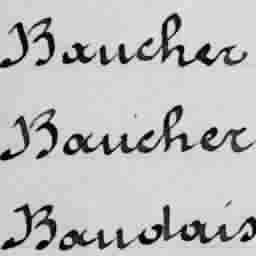 Baucher
Baucher
Baudais